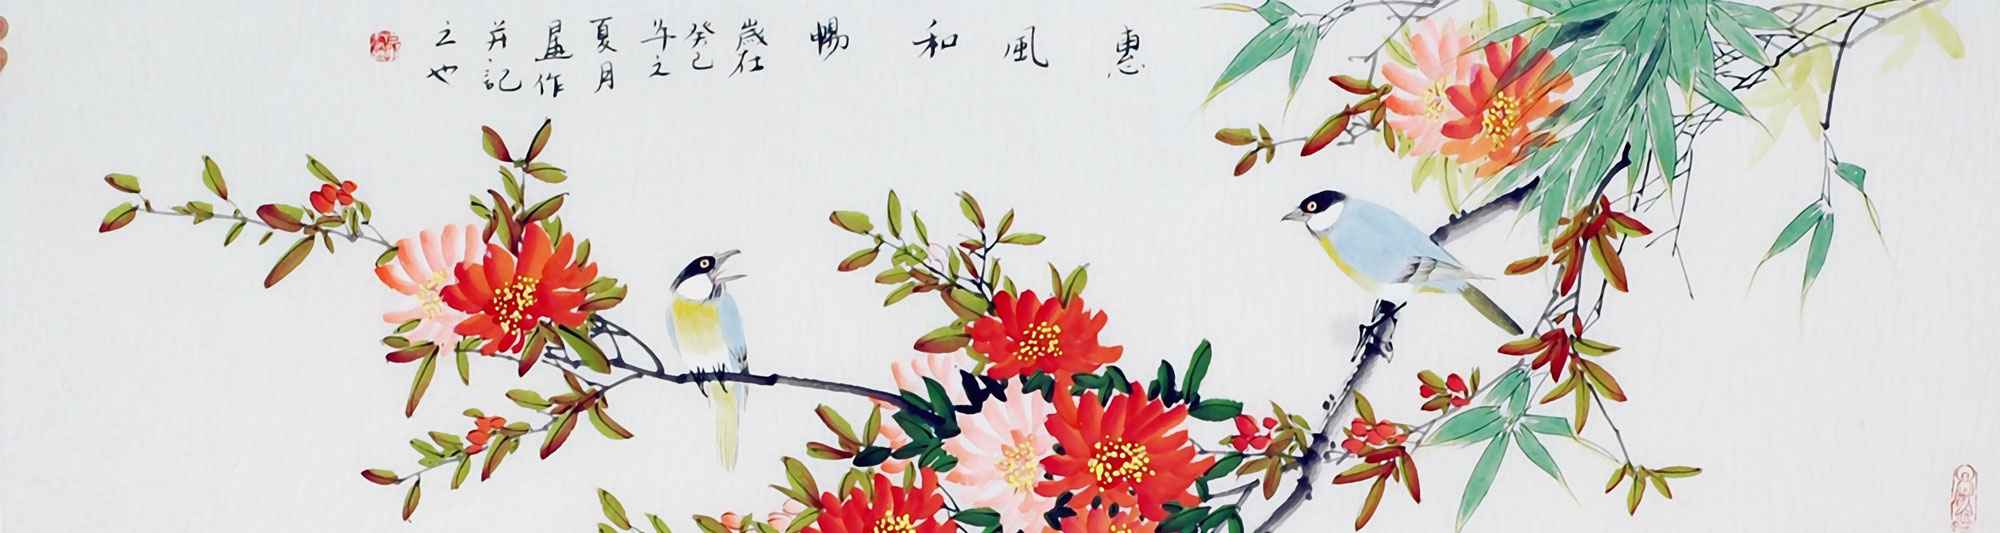 惠風和暢
歲在
癸巳
年之
夏月
畫作
並記
之也